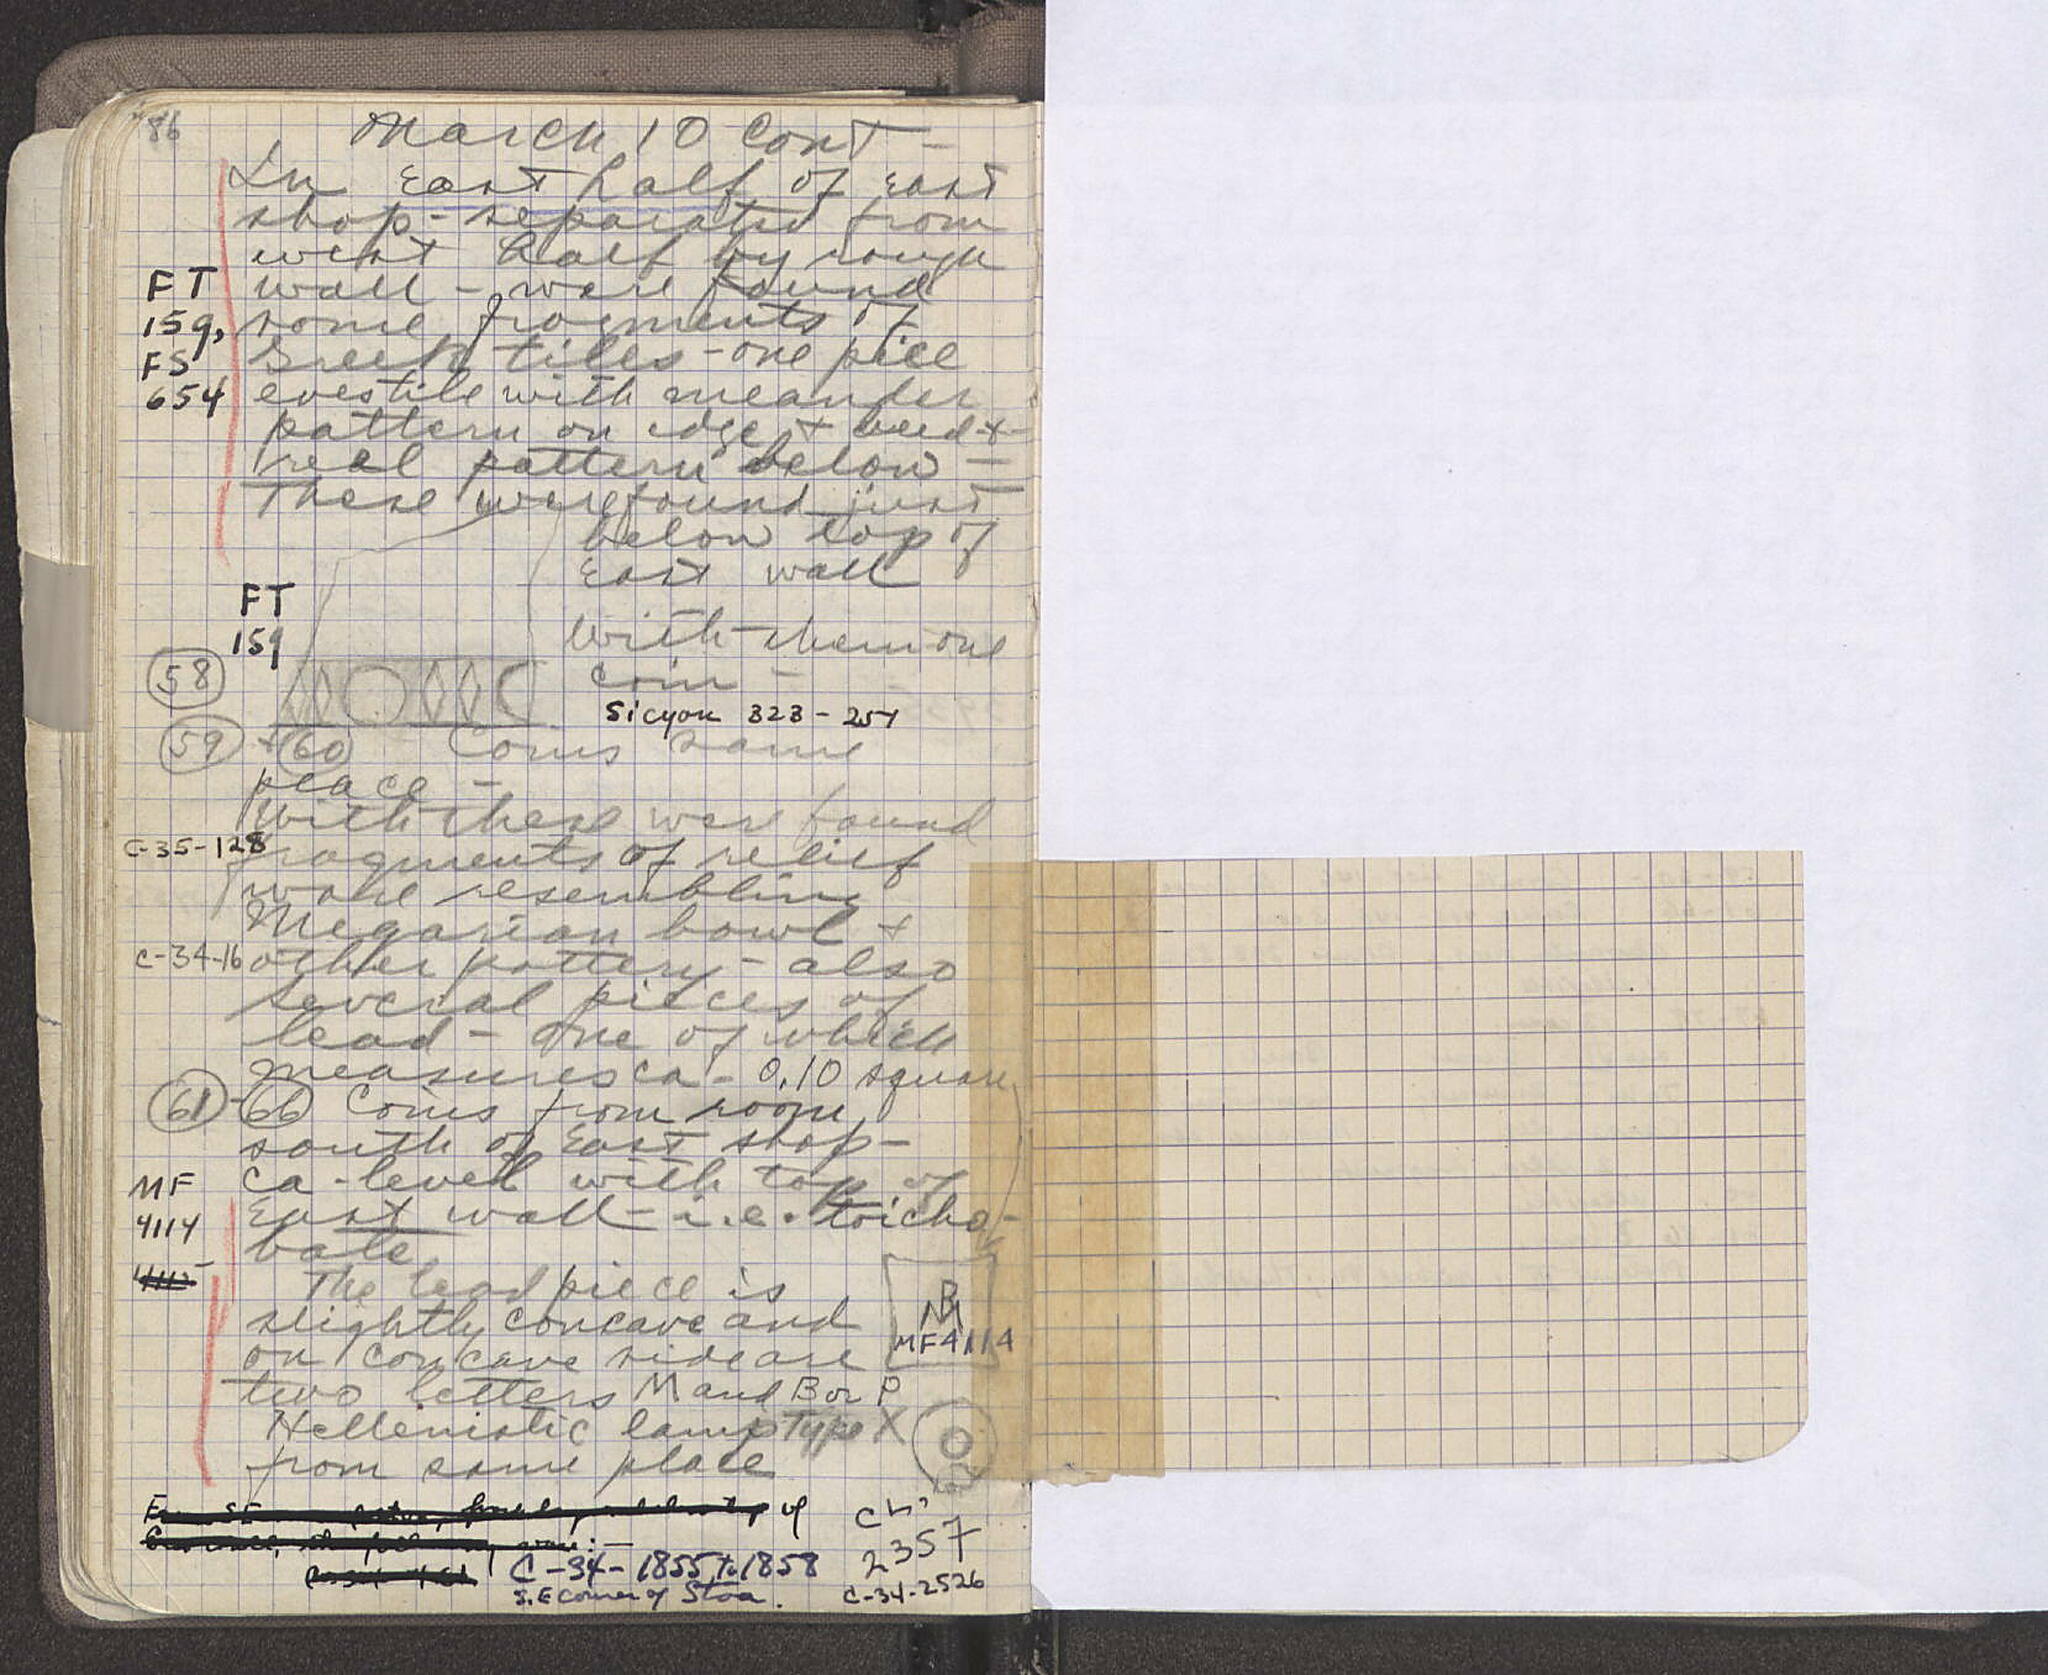 86
March 10 Cont -
In East half of East
shop - separated from
west half by rough
FT wall - were found
159, some fragments of
FS Greek tiles - one piece
654 evestile with meander
pattern on edge & bead &
real pattern below -
These were found just
below top of
East wall
FT
159
With them one
58 coin -
Sicyon 323 - 251
59 + 60 Coins same
place -
With these were found
C-35-128 fragments of relief
ware resembling
Megarian bowl +
C-34-16 other pottery - also
several pieces of
lead - one of which
measures ca - 0.10 square
61 - 66 Coins from room
south of East shop -
MF ca - level with top of
4114 East wall - i.e. toicho-
bate
4115
The lead piece is
slightly concave and
B
M
MF4114
on concave side are
two letters M and B or P
Hellenistic lamp Type X
from same place
of
C-34-1855 to 1858
S.E corner of Stoa.
2357
C-34-2526